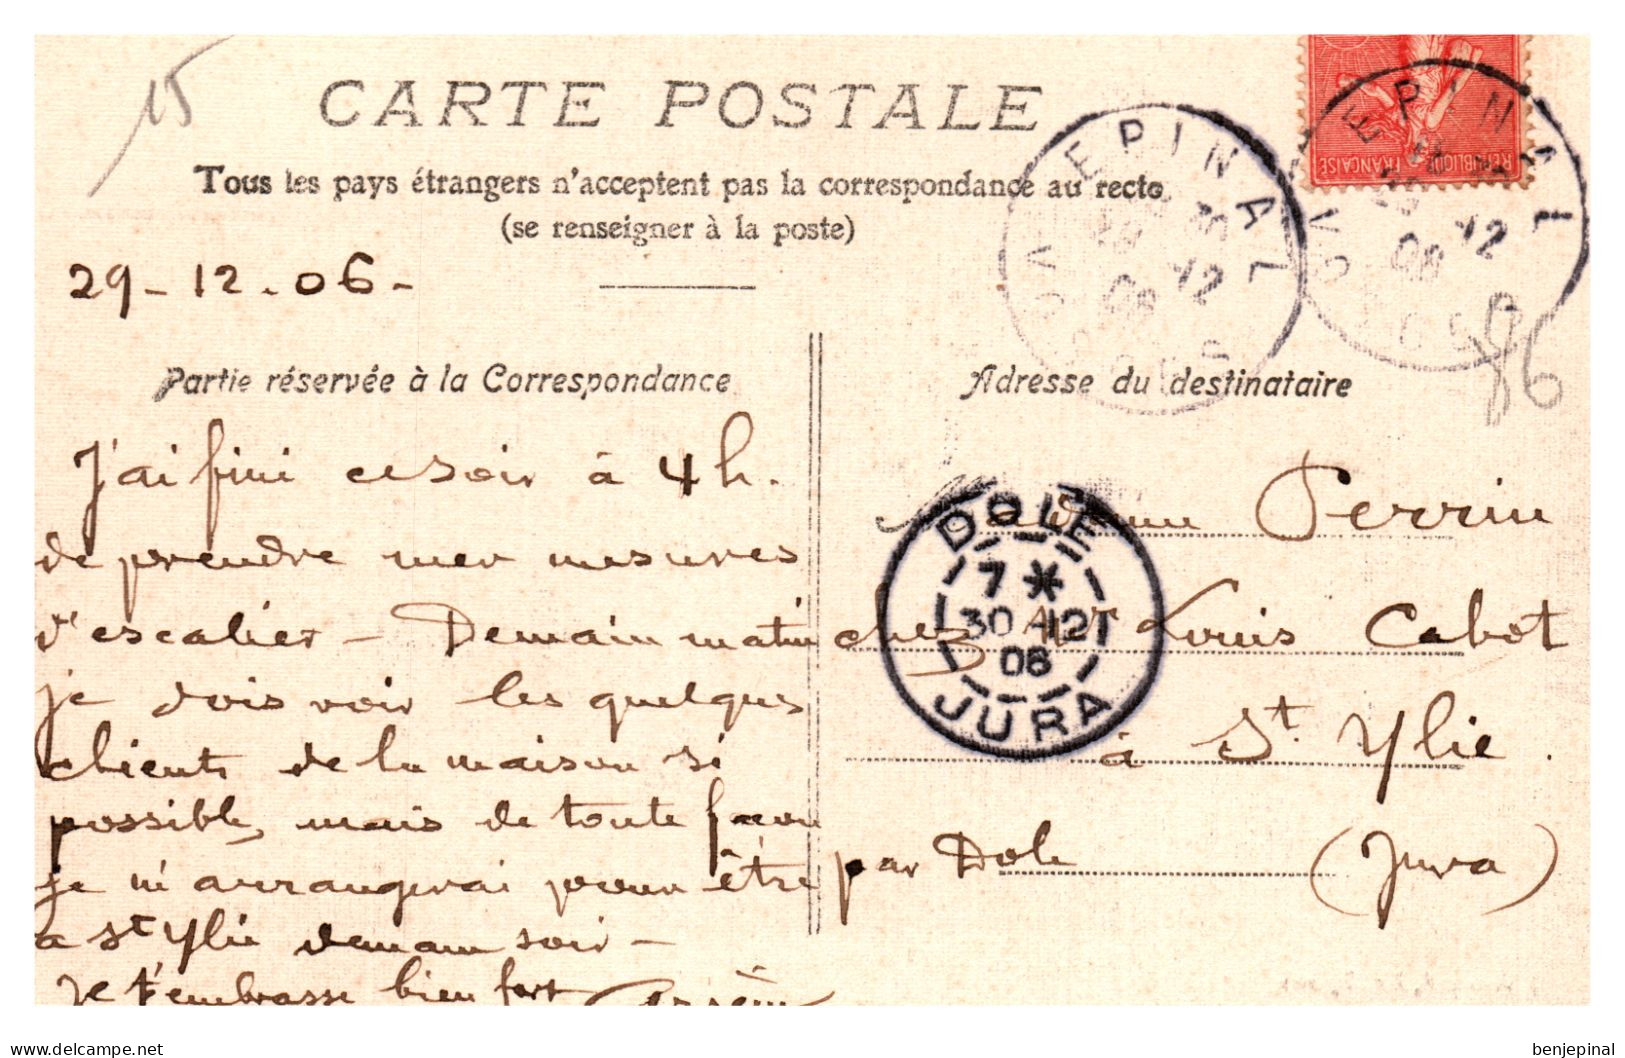 15
CARTE POSTALE
Tous les pays étrangers n'acceptent pas la correspondance au recto
(se renseigner à la poste)
29-12.06-
Partie réservée à la Correspondance
J'ai fini ce soir à 4h.
de prendre mes mesures
d'escalier - Demain matin
je dois voir les quelques
clients de la maison si
possible, mais de toute façon
je m'arrangerai pour être
a St Ylie demain soir -
Je t'embrasse bien fort
Adresse du destinataire
Madame Perrin
chez Mr Louis Cabot
à St. Ylie.
par Dole (Jura)
EPINAL
VOSGES
30 12
06
EPINAL
VOSGES
12
06
REPUBLIQUE FRANÇAISE
86
DOLE
7 *
30 12
06
JURA
delcampe.net
benjepinal